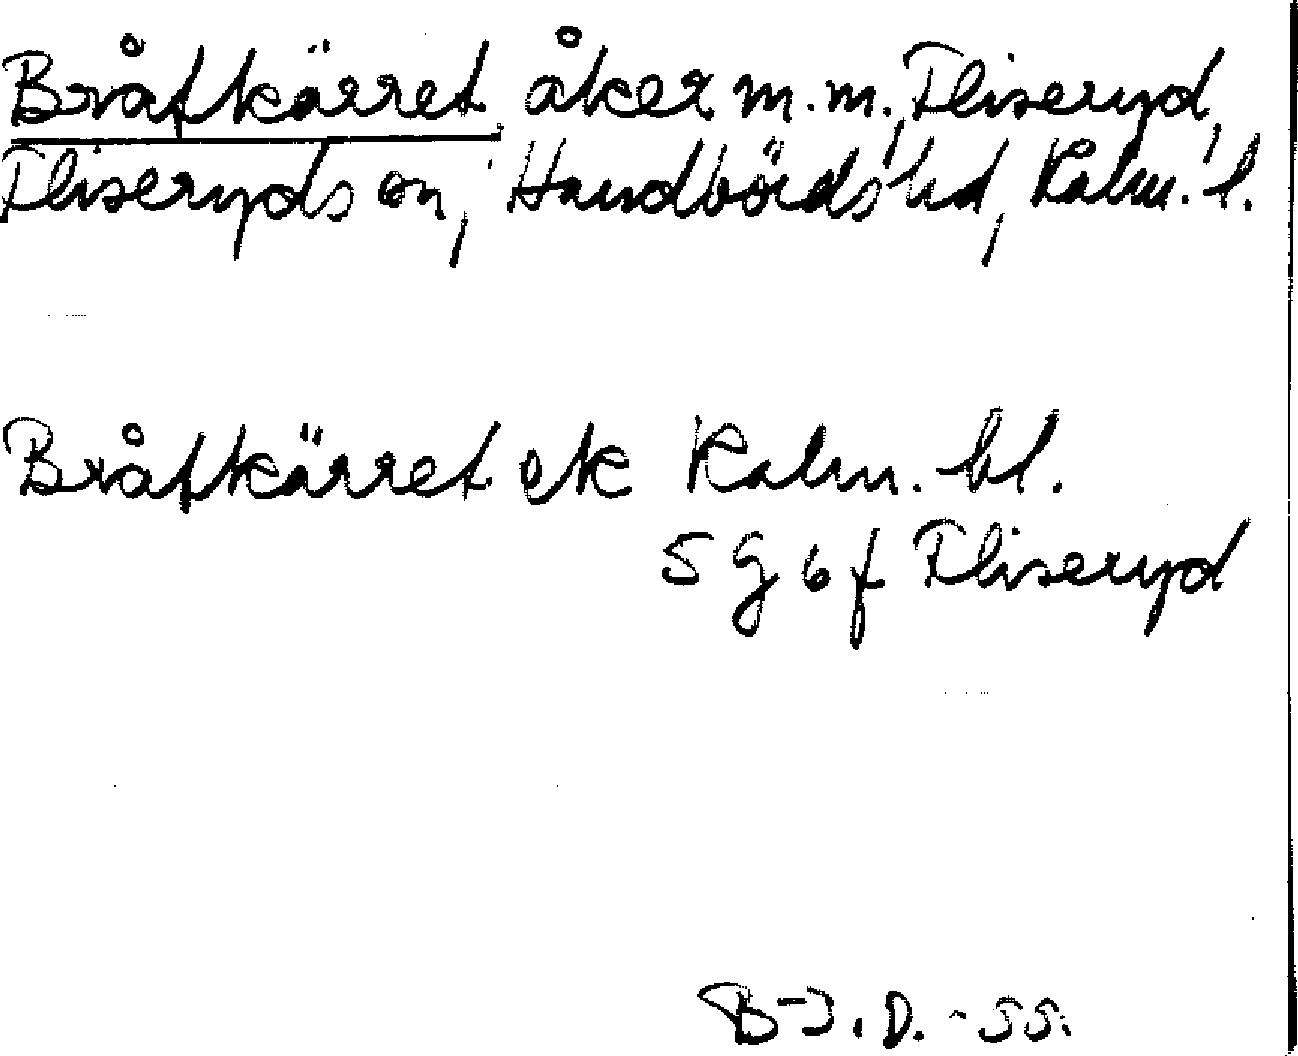 Bråtkärret, åker m.m., Fliseryd,
Fliseryds sn, Handbörds hd, Kalm. l.
Bråtkärret ek Kalm. bl.
5 G 6 f Fliseryd
B-J.D. -55.